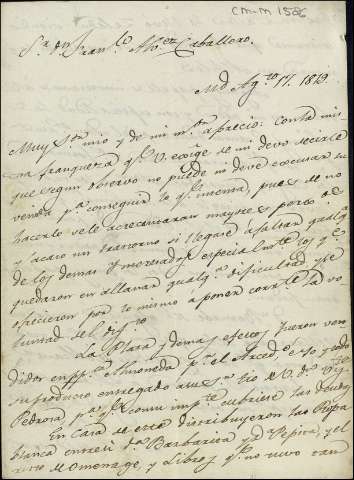 CM-M 1586
Sr. Dn. Franco. Alvez Caballero.
Md. Agto. 17. 1819.
Muy Sor. mio y de mi mor. aprecio: con la mis-
ma franqueza qe. V. exige de mi devo decirle
que segun observo no puede ni deve escusar su
venida pa. conseguir lo qe. intenta, pues de no
hacerlo se le acrecentaran mayores perjos.
y acaso un trastorno si llegase a faltar qualqa.
de los demas morenados especialmte. los qe.
quedaron en allanar qualqa. dificultad qe. se
ofreciere por lo mismo a poner corrte. la vo-
luntad del
La Plata y demas efectos fueron ven-
didos en almoneda pr. el Arced.o y todo
su producto entregado a su tio el V. Dn.
Pedrosa pa. qe. con su impte. cubriese las deudas
En casa de este distribuyeron la Ropa
blanca entre Da. Barbarita y Da. Pepita, y el
resto de omenage, y Libros qe. no tuvo